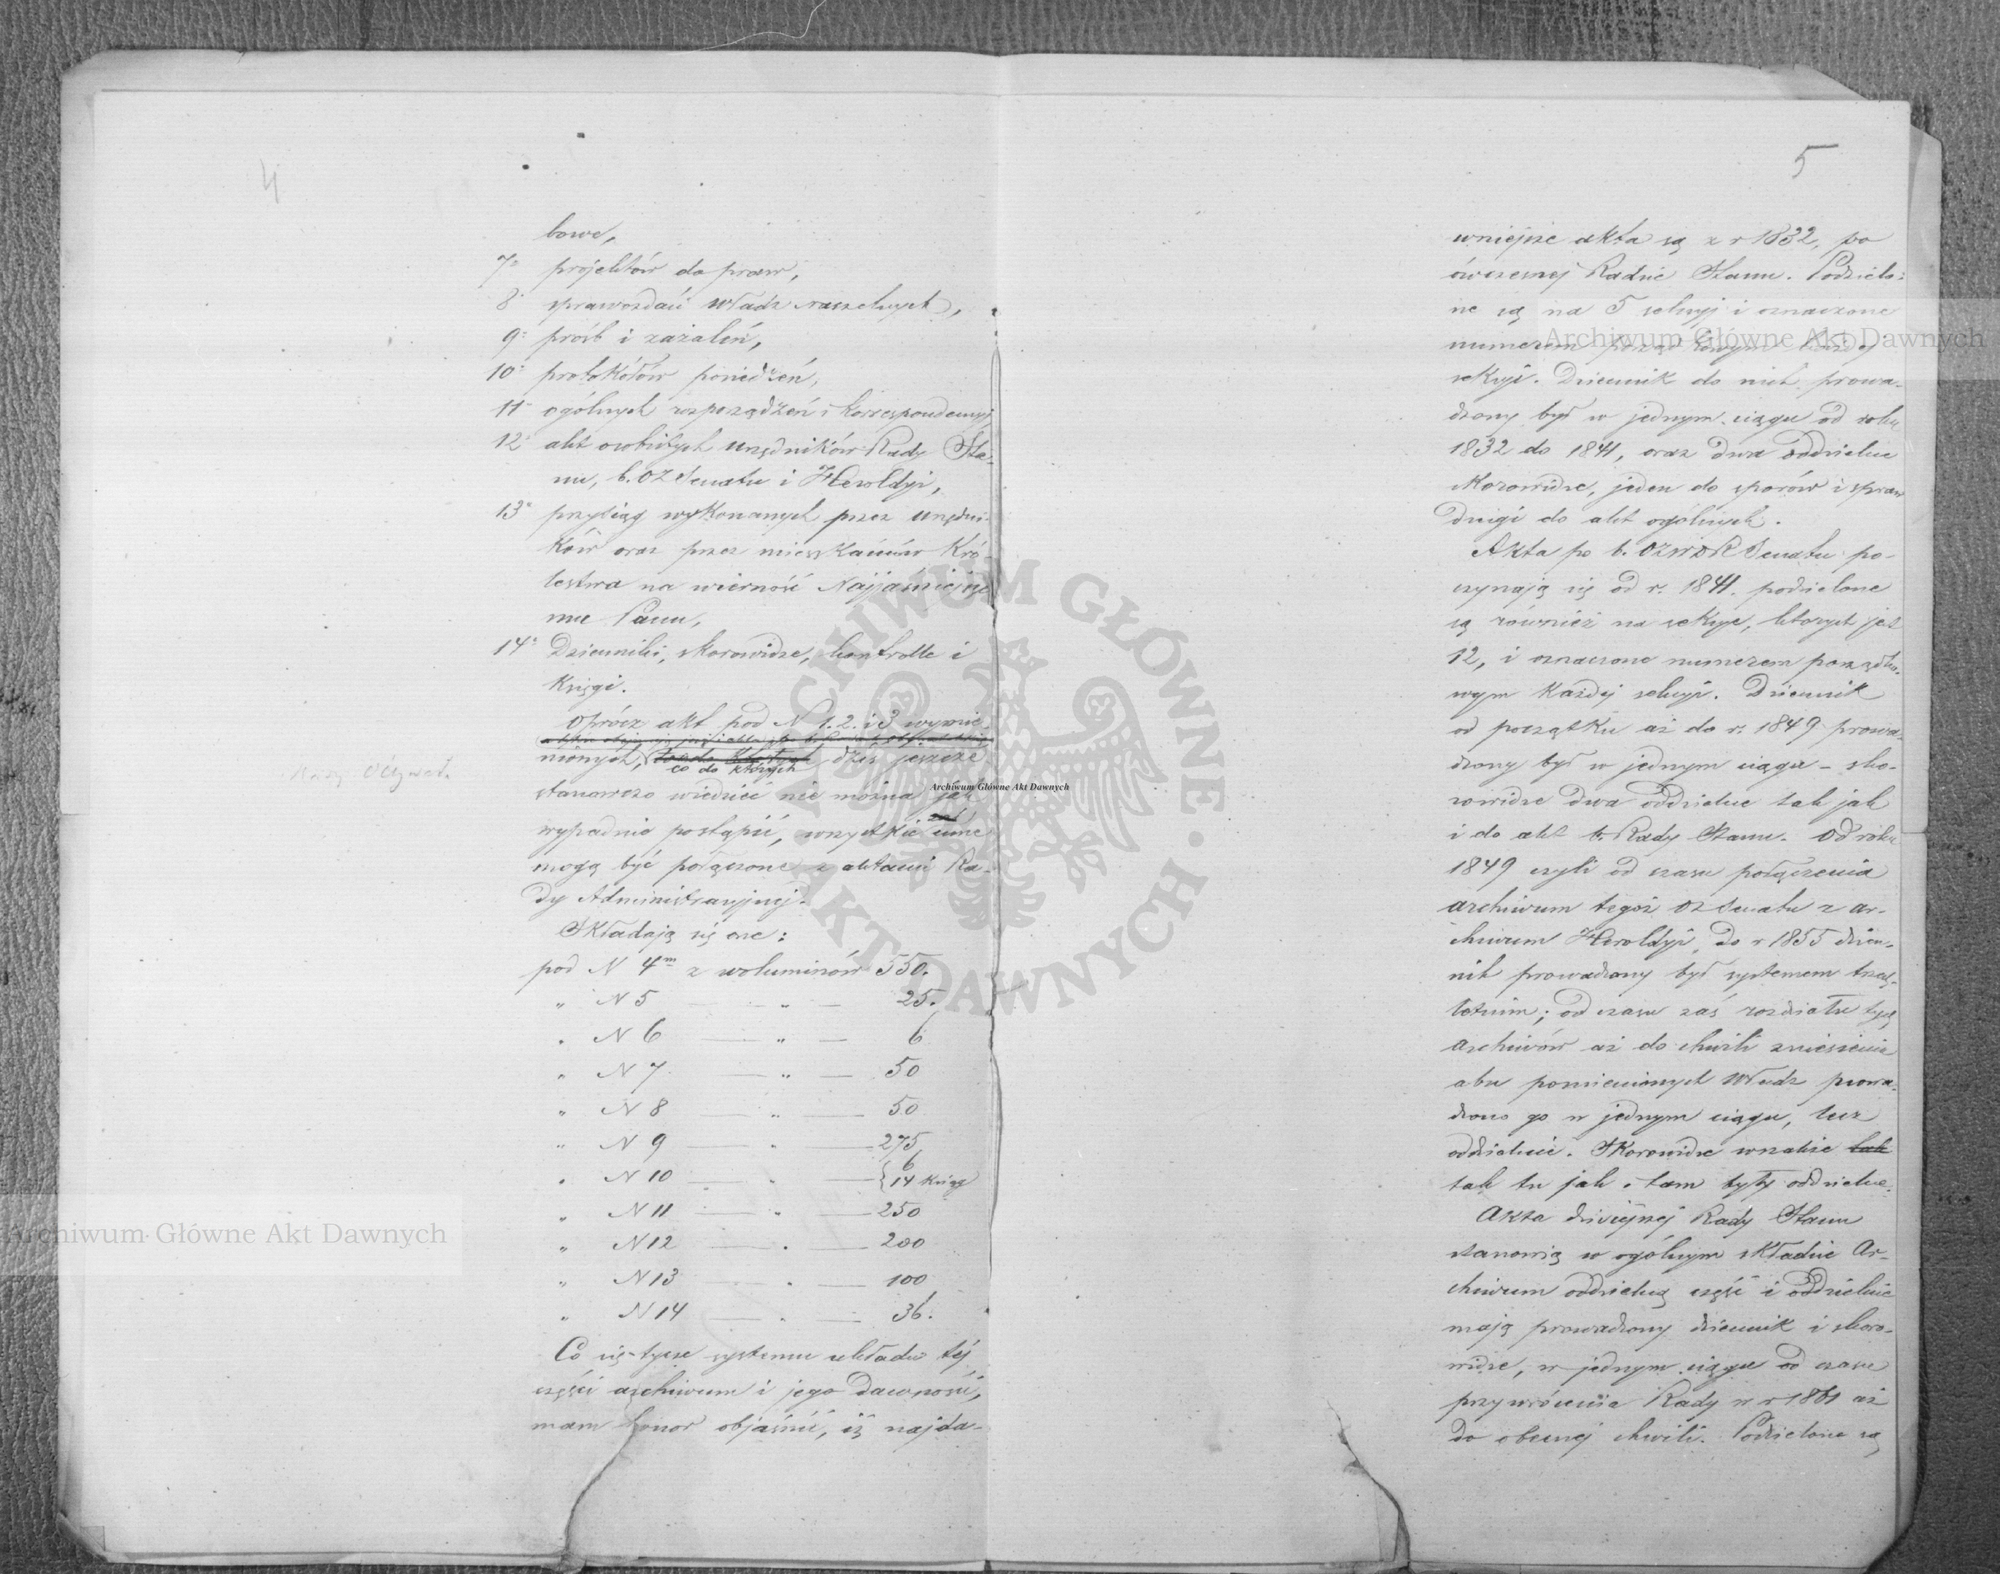 4
bowe,
7° projektów do praw,
8° sprawozdań Władz naczelnych,
9° próśb i zażaleń,
10° protokółów posiedzeń,
11° ogólnych rozporządzeń i korrespondencyj
12° akt osobistych urzędników Rady Sta-
nu, b. OZ Senatu i Heroldyi,
13° przysiąg wykonanych przez urzędni-
ków oraz przez mieszkańców Kró-
lestwa na wierność Najjaśniejsze
mu Panu,
14° Dzienniki, skorowidze, kontrolle i
Księgi.
Oprócz akt pod N 1. 2. i 3 wymie-
nionych, co do których dziś jeszcze
stanowczo wiedzieć nie można jak
wypadnie postąpić, wszystkie inne
mogą być połączone z aktami Ra-
dy Administracyjnej.
Składają się one:
pod N 4m z woluminów 550.
" N 5 — " — 25.
" N 6 — " — 6
" N 7 — " — 50
" N 8 — " — 50
" N 9 — " — 275
" N 10 — " — { 6
14 ksiąg
" N 11 — " — 250
" N 12 — " — 200
" N 13 — " — 100
" N 14 — " — 36.
Co się tycze systemu układu téj
części archiwum i jego dawności,
mam honor objaśnić, iż najda-
5
wniejsze akta są z r 1832, po
ówczesnej Radzie Stanu. Podzielo-
ne są na 5 sekcyj i oznaczone
numerem porządkowym każdej
sekcyi. Dziennik do nich prowa-
dzony był w jednym ciągu od roku
1832 do 1841, oraz dwa oddzielne
skorowidze, jeden do sporów i spraw
drugi do akt ogólnych.
Akta po b. OZWDR Senatu po-
czynają się od r. 1841. podzielone
są również na sekcye, których jest
12, i oznaczone numerem porządko-
wym każdej sekcyi. Dziennik
od początku aż do r. 1849 prowa-
dzony był w jednym ciągu – sko-
rowidze dwa oddzielne tak jak
i do akt b. Rady Stanu. Od roku
1849 czyli od czasu połączenia
archiwum tegoż OZ Senatu z ar-
chiwum Heroldyi, do r 1855 dzien-
nik prowadzony był systemem trzech-
letnim; od czasu zaś rozdziału tych
archiwów aż do chwili zniesienia
obu pomienionych Władz prowa-
dzono go w jednym ciągu, lecz
oddzielnie. Skorowidze wszakże tak
tak tu jak i tam były oddzielne.
Akta dzisiejszej Rady Stanu
stanowią w ogólnym składzie Ar-
chiwum oddzielną część i oddzielnie
mają prowadzony dziennik i skoro-
widze, w jednym ciągu od czasu
przywrócenia Rady w r 1861 aż
do obecnej chwili. Podzielone są
Archiwum Główne Akt Dawnych
Archiwum Główne Akt Dawnych
Archiwum Główne Akt Dawnych
ARCHIWUM GŁÓWNE · AKT DAWNYCH ·